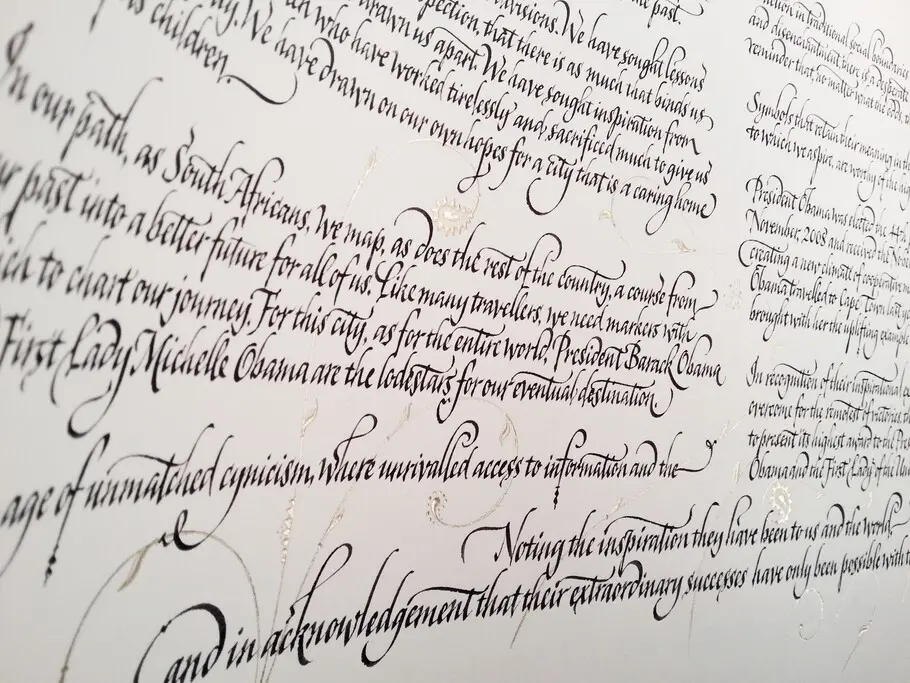 the past.
visions. We have sought lessons
spection, that there is as much that binds us
drawn us apart. We have sought inspiration from
who have worked tirelessly and sacrificed much to give us
We have drawn on our own hopes for a city that is a caring home
as children.
In our path, as South Africans, we map, as does the rest of the country, a course from
past into a better future for all of us. Like many travellers, we need markers with
to chart our journey. For this city, as for the entire world, President Barack Obama
First Lady Michelle Obama are the lodestars for our eventual destination.
age of unmatched cynicism, where unrivalled access to information and the
Noting the inspiration they have been to us and the world,
and in acknowledgement that their extraordinary successes have only been possible with
in traditional social boundaries
and disenchantment there is a desperate
reminder that, no matter what the odds,
Symbols that retain their meaning in
to which we aspire, are worthy of the
President Obama was elected the 44th
November, 2008 and received the
creating a new climate of cooperative
Obama travelled to Cape Town last
brought with her the uplifting example
In recognition of their inspirational
overcome for the remotest of victories,
to present its highest award to the
Obama and the First Lady of the